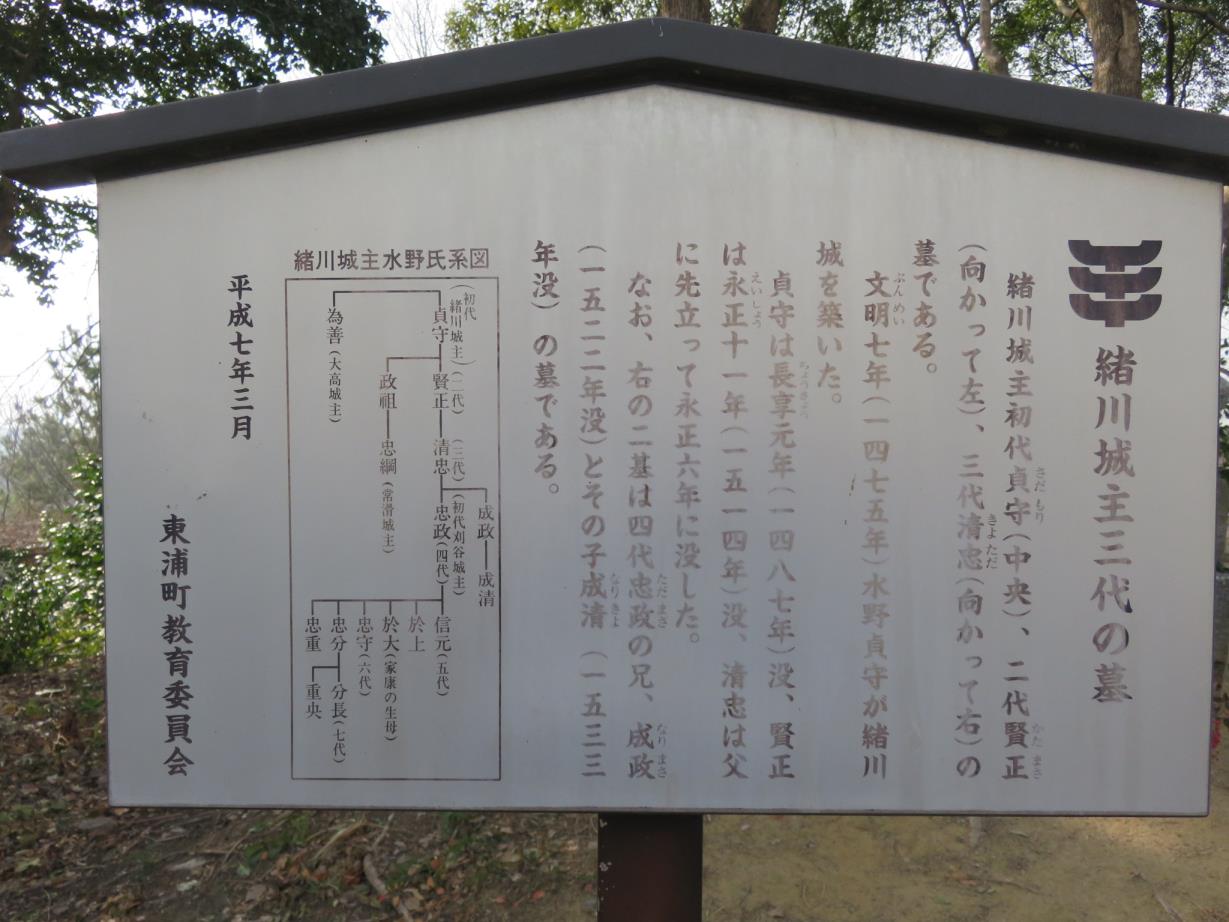 緒川城主三代の墓
緒川城主初代貞守(中央)、二代賢正
さだもり
かたまさ
(向かって左)、三代清忠(向かって右)の
きよただ
墓である。
文明七年(一四七五年)水野貞守が緒川
ぶんめい
城を築いた。
貞守は長享元年(一四八七年)没、賢正
ちょうきょう
は永正十一年(一五一四年)没、清忠は父
えいしょう
に先立って永正六年に没した。
なお、右の二基は四代忠政の兄、成政
ただまさ
なりまさ
(一五二二年没)とその子成清(一五三三
なりきよ
年没)の墓である。
緒川城主水野氏系図
成政
成清
(初代
緒川城主)
貞守
(二代)
賢正
(三代)
清忠
(初代刈谷城主)
忠政(四代)
信元(五代)
於上
於大(家康の生母)
忠守(六代)
忠分
分長(七代)
忠重
重央
政祖
忠綱(常滑城主)
為善(大高城主)
平成七年三月
東浦町教育委員会